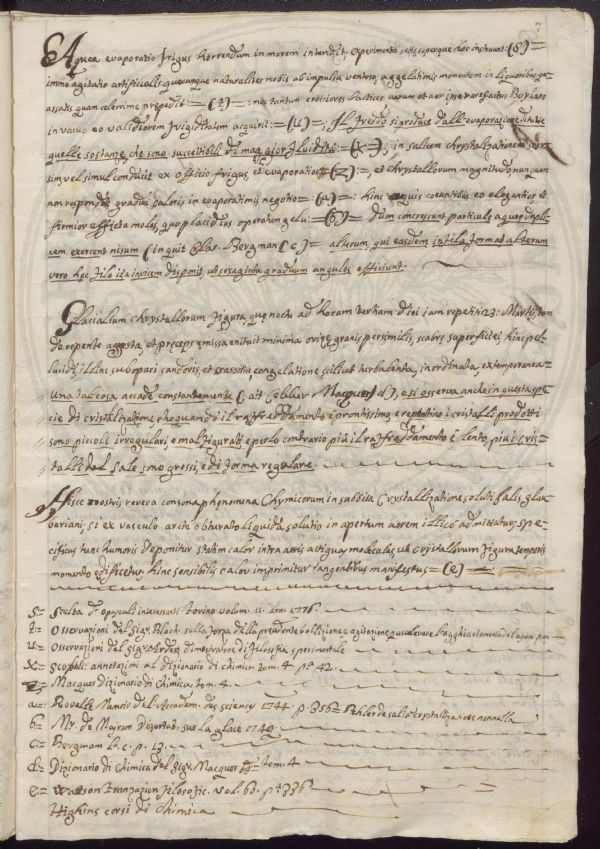 Aquea evaporatio frigus horrendum in morem intendit; experimenta satis superque hoc instruunt: (s)=
immo agitatio artificialis quecunque naturaliter nobis ab impulsu ventoso, aggelationis momentum in liquoribus
assatis quam celerrime prependit: =(t)= : nec tantum
in vacuo eo validiorem frigiditatem acquirit: =(u)=; Il freddo si produce dall'evaporazione di tutte
quelle sostanze che sono suscettibili di maggior fluidità: =(x)=; in salium chrystallizatione
simul conducit ex officio frigus, et evaporatio =(z)=, et chrystallorum magnitudo nunquam
non respondit gradui caloris in evaporationis negotio =(a)=: hinc aquis coeuntibus eo elegantior et
firmior efficta moles, quo placidius operatum gelu: =(b)= Dum concrescunt particule aque
cem exercent nisum (inquit Clar. Bergman (c)= alterum, qui easdem in fila format alterum
vero hec fila ita invicem disponit, ut sexaginta graduum angulos efficiunt.
Glacialium chrystallorum figura, que nocte ad horam tertiam diei jam repetiti 23: Martij,
do repente aggesta, et preceps emissa enituit minima orize granis persimilis, scabre superficiei, hinc pel-
lucidi, illinc subopaci candoris, et crassitiei, congelatione scilicet turbulenta, inordinata, extemporanea:
una tal cosa accade constantemente (ait Celeber Macquer d), e si osserva anche in questa spe-
cie di cristalizatione, che quando il raffreddamento e prontissimo, e repentino i cristalli prodotti
sono piccoli irregulari, e mal figurati e per lo contrario più il raffreddamento è lento, più i cris-
talli del sale sono grossi, e di forma regolare.
Hisce nostris revera consona phenomena Chymicorum in subita Crystallizatione soluti salis glau-
beriani; si ex vasculo arcte obturato liquida solutio in apertum aerem illico admittatur; spe-
cificus tunc humoris deponitur statim calor intra aeris attiguas moleculas, ut crystallorum figura temporis
momento edificetur, hinc sensibilis calor imprimitur tangentibus manifestus =(e)=
s:= Scelta d'opuscoli interessanti Torino volum. 11. ann. 1776.
t:= Osservazioni del Sigr. Black sulla forza della precedente bollizione e agitazione
u:= Osservazioni del Sigr. Arden dimostratore di filosofia sperimentale
x:= Scopoli: annotazioni al dizionario di chimica tom. 4 pa. 42.
z:= Macquer Dizionario di Chimica, tom. 4.
a:= Rouelle Memoir de l'Academ. des sciency 1744. p. 356
b:= Mr. de Mayran Dissertat. sur la glace 1749.
c:= Bergman l. c. p. 13.
d:= Dizionario di Chimica del Sigr. Macquer tom. 4
e:= Watson Tranzazion filosofic. vol. 60. pa. 336
Highins corsi di chimica